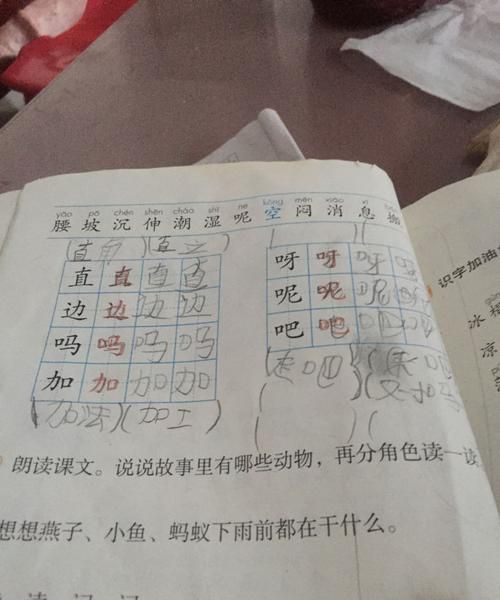 yāo pō chén shēn cháo shī ne kōng mēn xiāo xī
腰 坡 沉 伸 潮 湿 呢 空 闷 消 息 搬
(直角)(直立)
直 直 直 直
边 边 边 边
吗 吗 吗 吗
加 加 加 加
(加法)(加工)
呀 呀 呀 呀
呢 呢 呢
吧 吧 吧 吧
朗读课文。说说故事里有哪些动物，再分角色读一读
想想燕子、小鱼、蚂蚁下雨前都在干什么。
识字加油
冰
凉